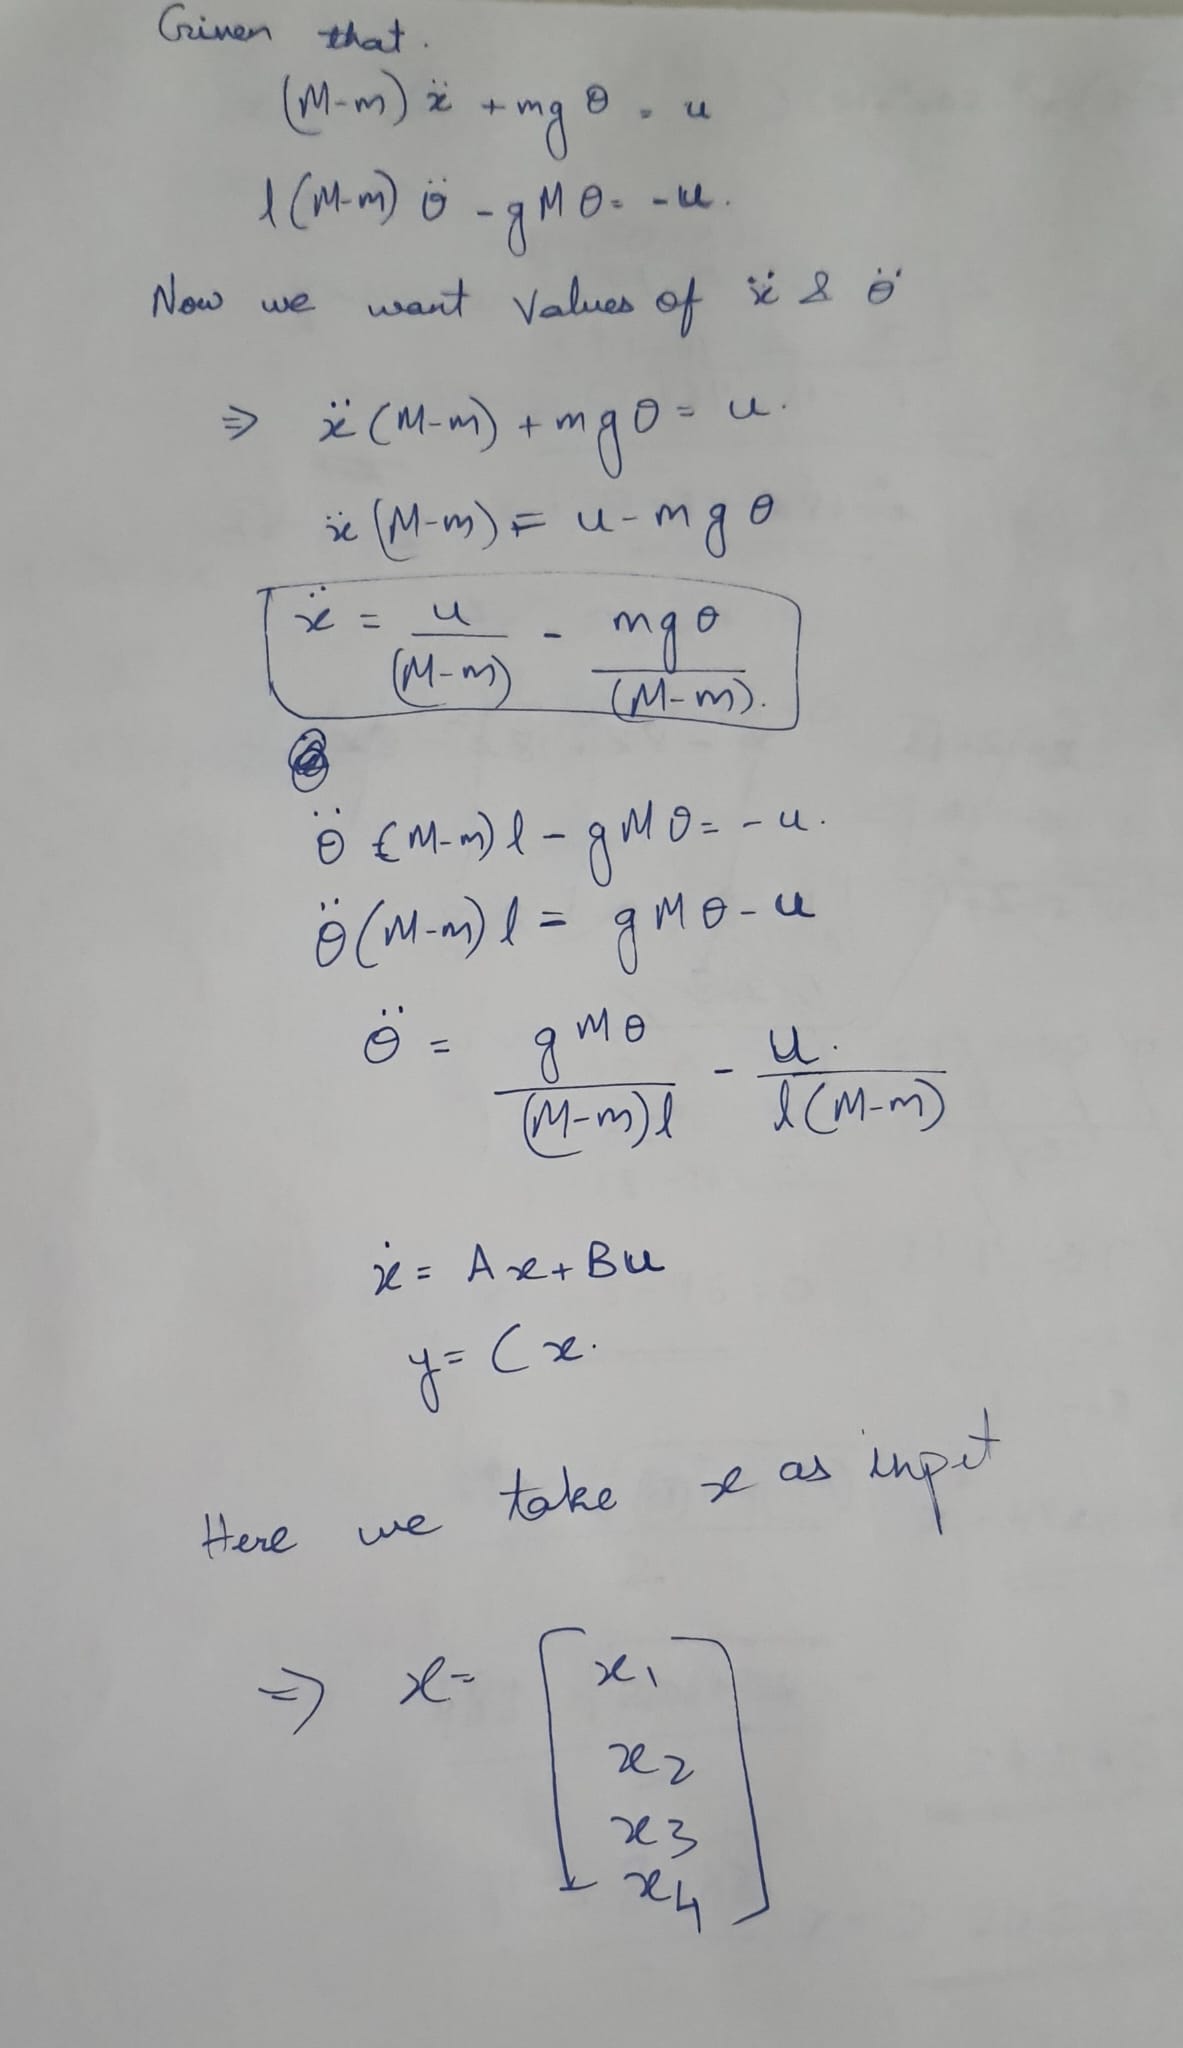 Given that.
(M-m) ẍ + mg θ = u
l (M-m) θ̈ - g M θ = -u.
Now we want values of ẍ & θ̈
⇒ ẍ (M-m) + mg θ = u.
ẍ (M-m) = u - mg θ
ẍ = u/(M-m) - mgθ/(M-m).
θ̈ (M-m) l - g M θ = -u.
θ̈ (M-m) l = g M θ - u
θ̈ = gMθ/(M-m)l - u./l(M-m)
ẋ = Ax + Bu
y = Cx.
Here we take x as input
⇒ x = [x1
x2
x3
x4]